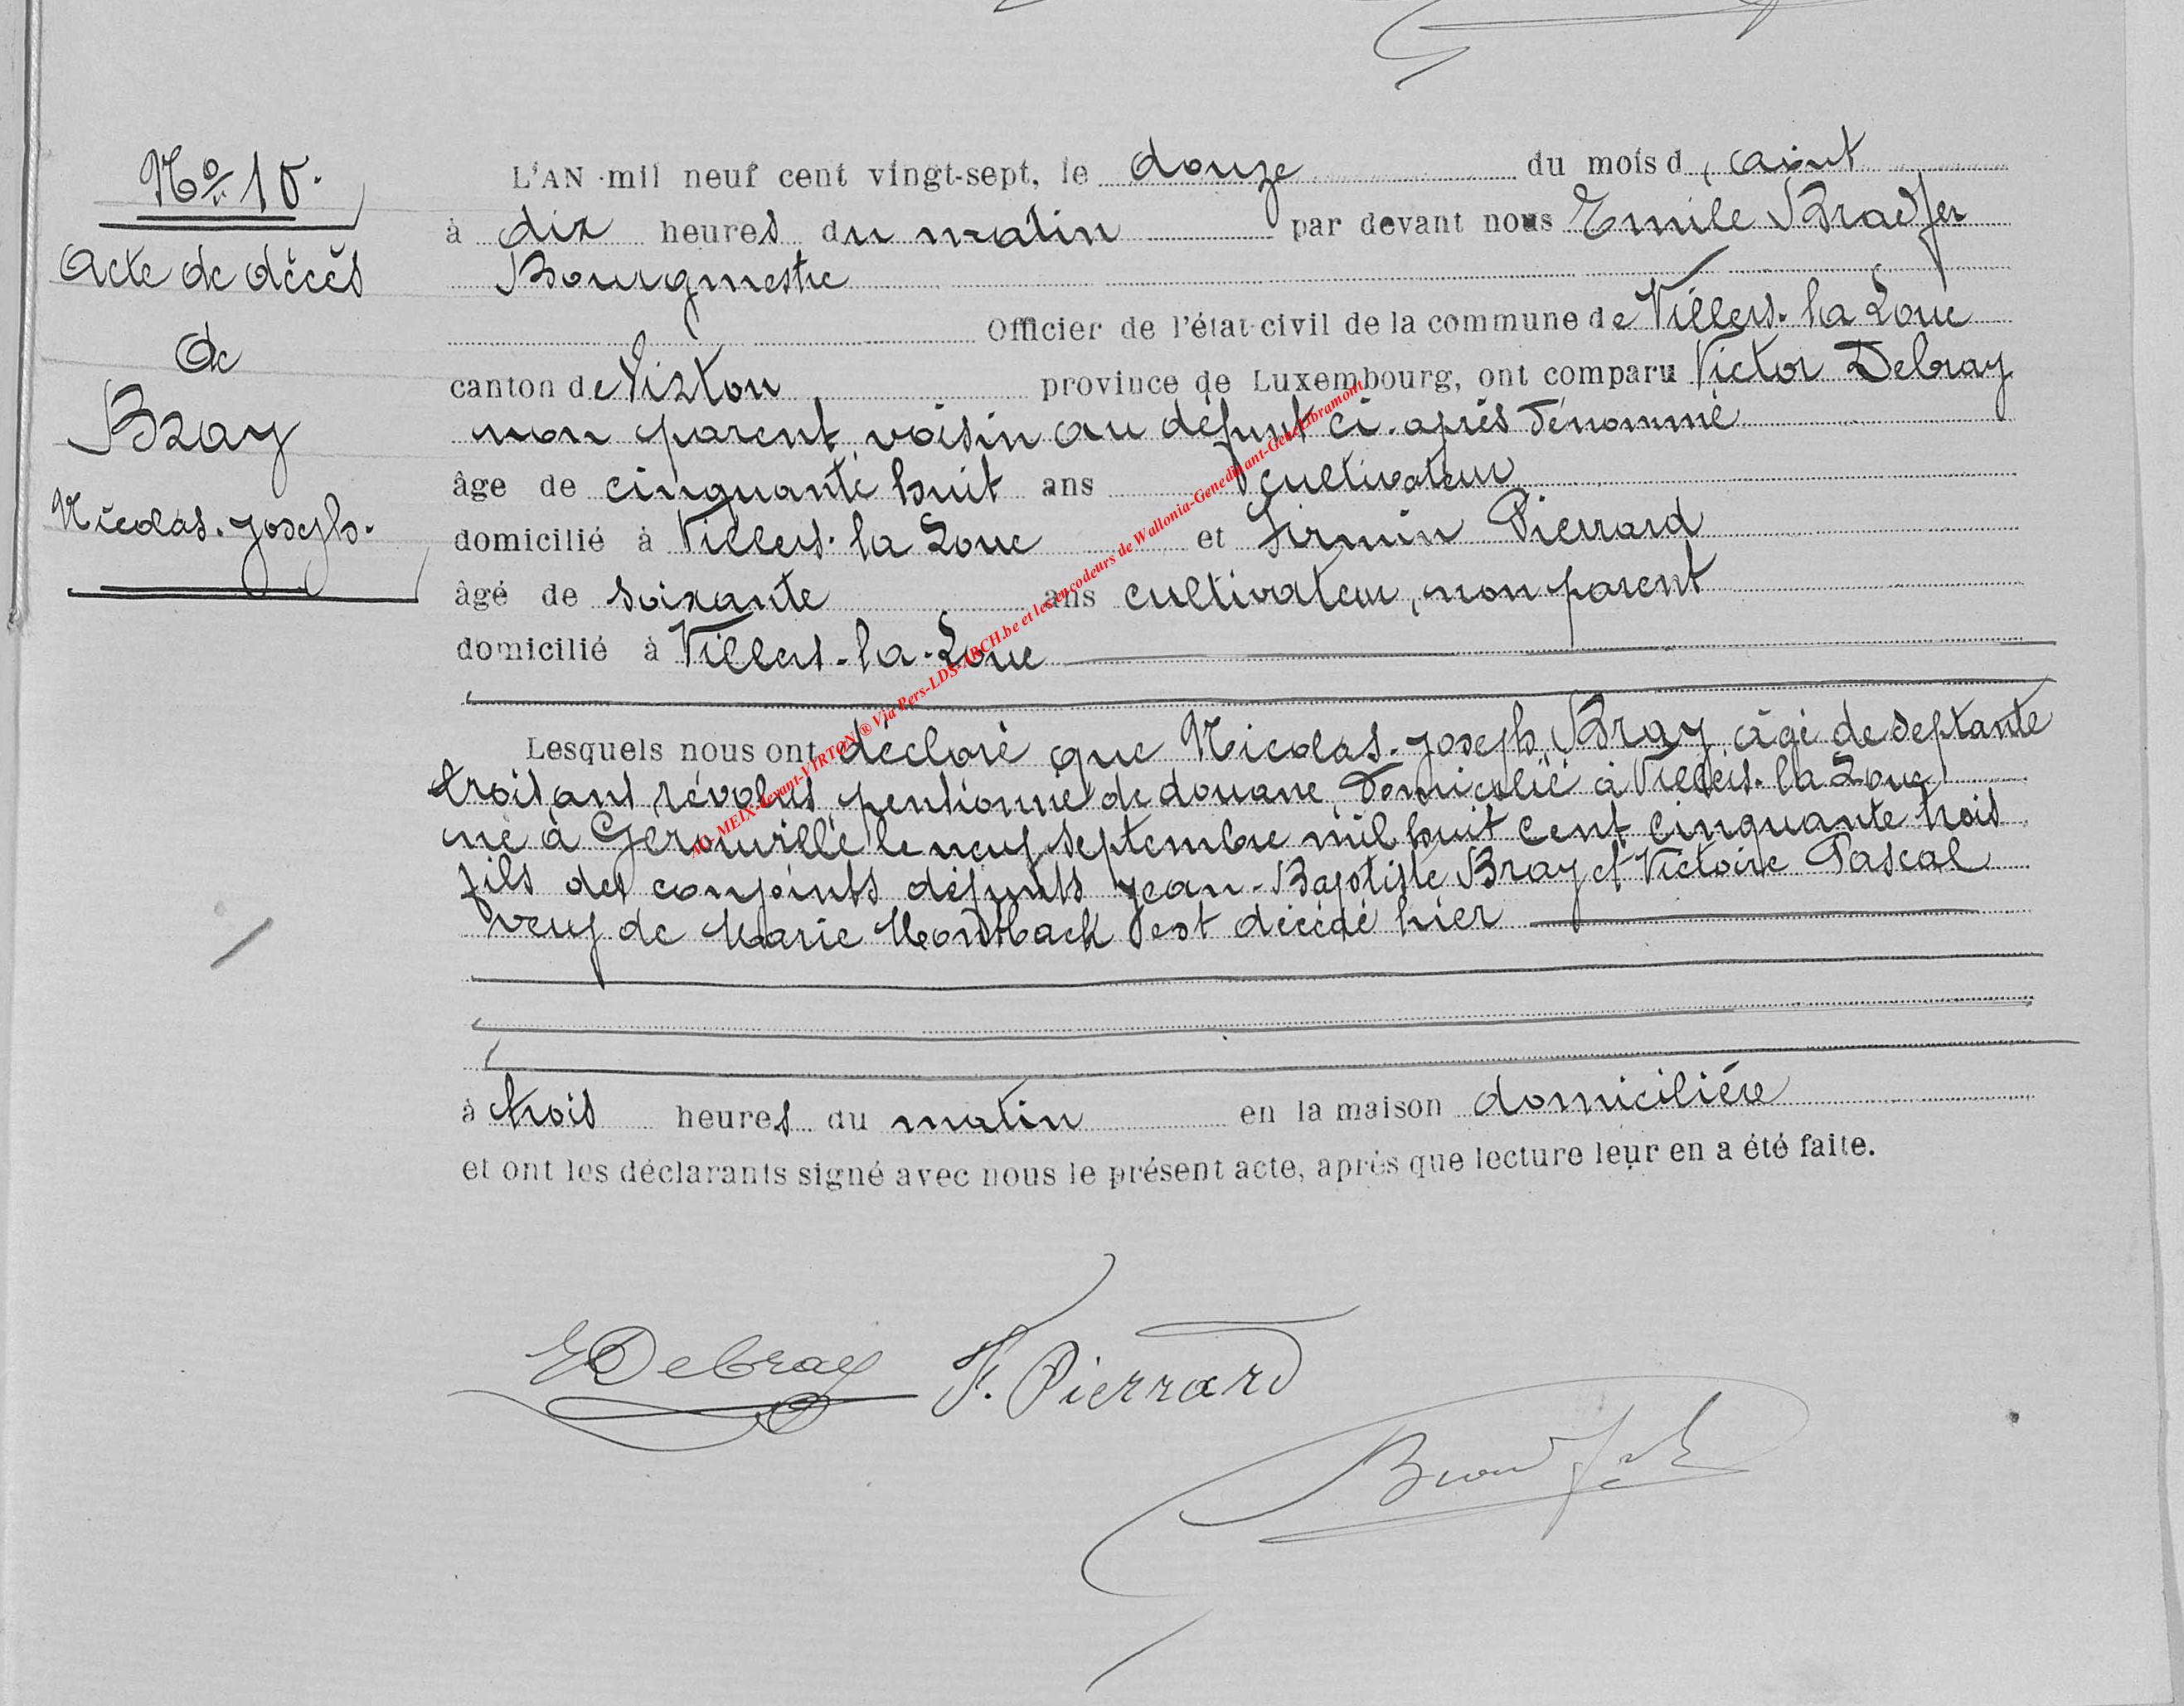 No 10.
Acte de décès
de
Bray
Nicolas-Joseph.
L'AN mil neuf cent vingt-sept, le douze du mois d'août
à dix heures du matin par devant nous Emile Bradfer
Bourgmestre
Officier de l'état-civil de la commune de Villers-la-Loue
canton de Virton province de Luxembourg, ont comparu Victor Debray
non parent, voisin au défunt ci-après dénommé
âge de cinquante huit ans cultivateur
domicilié à Villers-la Loue et Firmin Pierrard
âgé de soixante ans cultivateur, non parent
domicilié à Villers-la-Loue
Lesquels nous ont déclaré que Nicolas-Joseph Bray, âgé de septante
trois ans révolus, pensionné de douane, domicilié à Villers-la Loue
né à Gerouville le neuf septembre mil huit cent cinquante trois
fils des conjoints défunts Jean-Baptiste Bray et Victoire Pascal
veuf de Marie est décédé hier
à trois heures du matin en la maison domicilière
et ont les déclarants signé avec nous le présent acte, après que lecture leur en a été faite.
Debray F. Pierrard
Bradfer
AO MEIX-devant-VIRTON ® Via Pers-LDS-ARCH.be et les encodeurs de Wallonia-Genedinant-GeneLibramont